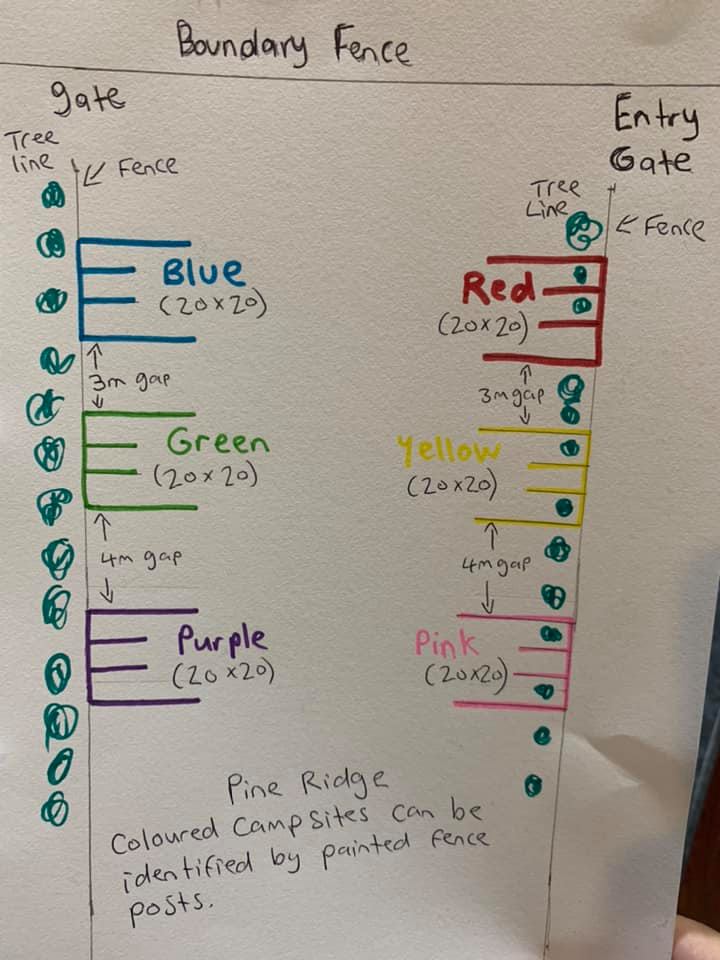 Boundary Fence
gate
Entry
Gate
Tree
line
Fence
Tree
Line
Fence
Blue
(20x20)
Red
(20x20)
3m gap
3m gap
Green
(20x20)
Yellow
(20x20)
4m gap
4m gap
Purple
(20x20)
Pink
(20x20)
Pine Ridge
Coloured Campsites can be
identified by painted fence
posts.